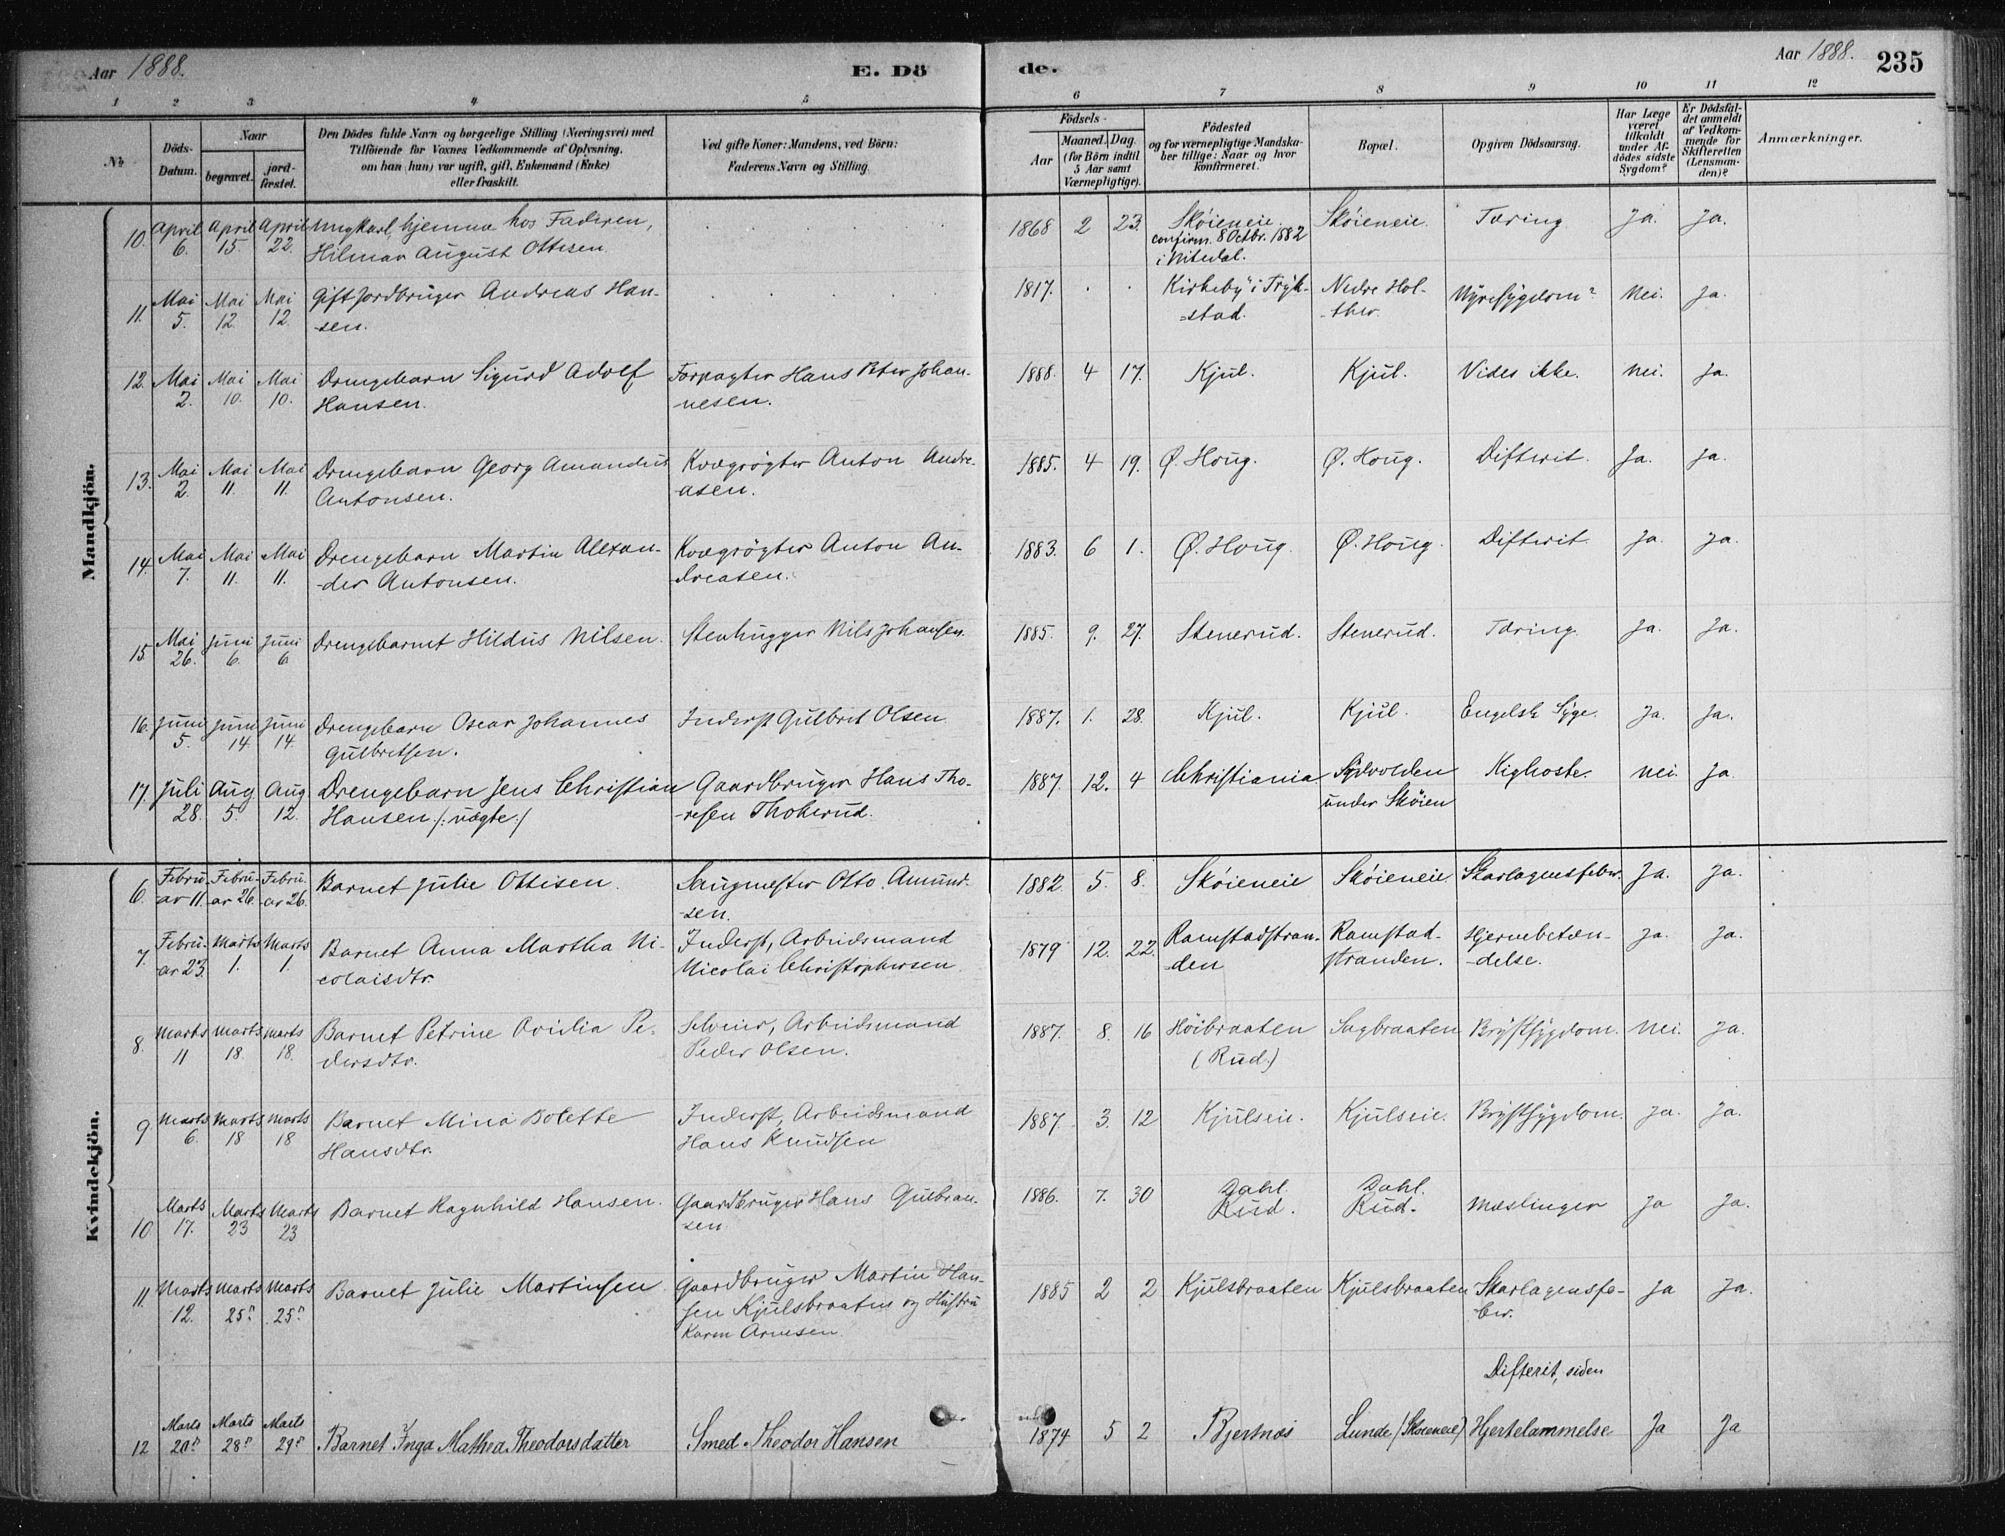 Aar 1888.
E. Dö
de.
Aar 1888.
235
1 2 3 4 5 6 7 8 9 10 11 12
No
Döds-Datum.
Naar
begravet.
jord-fæstet.
Den Dödes fulde Navn og borgerlige Stilling (Næringsvei) med
Tilföiende for Voxnes Vedkommende af Oplysning,
om han (hun) var ugift, gift, Enkemand (Enke)
eller fraskilt.
Ved gifte Koner: Mandens, ved Börn:
Faderens Navn og Stilling.
Födsels-
Aar
Maaned. Dag.
(for Börn indtil
5 Aar samt
Værnepligtige).
Födested
og for værnepligtige Mandska-
ber tillige: Naar og hvor
konfirmeret.
Bopæl.
Opgiven Dödsaarsag.
Har Læge
været
tilkaldt
under Af-
dödes sidste
Sygdom?
Er Dödsfal-
det anmeldt
af Vedkom-
mende for
Skifteretten
(Lensman-
den)?
Anmærkninger.
Mandkjön.
10. April 6. April 15. April 22. Ungkarl, hjemme hos Faderen, 1868 2 23. Skøieneie Skøieneie. Tæring Ja. Ja.
Hilmar August Ottesen. confirm. 8 Octbr. 1882
i Nitedal.
11. Mai 5. Mai 12. Mai 12. Gift Jordbruger Andreas Han- 1817. Kirkeby i Tryk- Nedre Hol- Nyresygdom? Nei. Ja.
-sen. -stad. -ther.
12. Mai 2. Mai 10. Mai 10. Drengebarn Sigurd Adolf Forpagter Hans Peter Johan- 1888. 4 17. Kjul. Kjul. Vides ikke. Nei. Ja.
Hansen. -nesen.
13. Mai 2. Mai 11. Mai 11. Drengebarn Georg Amandus Kvægrøgter Anton Andre- 1885. 4 19. Ø. Houg. Ø. Houg. Difterit. Ja. Ja.
Antonsen. -asen.
14. Mai 7. Mai 11. Mai 11. Drengebarn Martin Alexan- Kvægrøgter Anton An- 1883. 6 1. Ø. Houg. Ø. Houg. Difterit. Ja. Ja.
-der Antonsen. -dreasen.
15 Mai 26. Juni 6. Juni 6 Drengebarnet Hildus Nilsen. Stenhugger Nils Johansen. 1885. 9. 27. Stenerud. Stenerud. Tæring. Ja. Ja.
16. Juni 5. Juni 14. Juni 14. Drengebarn Oscar Johannes Inderst Gulbret Olsen. 1887. 1. 28. Kjul. Kjul. Engelsk Syge. Ja. Ja.
Gulbretsen.
17. Juli 28. Aug 5. Aug 12. Drengebarn Jens Christian Gaardbruger Hans Tho- 1887. 12. 4 Christiania Sydvolden Kighoste. Nei. Ja.
Hansen /: uægte :/ -resen Thokerud. under Skøien
Kvindekjön.
6. Febru-ar 11. Febru-ar 26. Febru-ar 26. Barnet Julie Ottisen. Saugmester Otto Amund- 1882. 5. 8. Skøieneie Skøieneie. Skarlagensfeber. Ja. Ja.
-sen.
7. Febru-ar 23 Marts 1. Marts 1. Barnet Anna Martha Ni- Inderst, Arbeidsmand 1879 12. 22. Ramstadstran- Ramstad- Hjernebetæn- Ja. Ja.
colaisdtr. Nicolai Christophersen. -den stranden. -delse.
8. Marts 11 Marts 18. Marts 18. Barnet Petrine Ovidia Pe- Selveier, Arbeidsmand 1887. 8. 16 Høibraaten Sagbraaten Brystsygdom. Nei. Ja.
dersdtr. Peder Olsen. (Rud.)
9 Marts 6. Marts 18 Marts 18 Barnet Mina Bolette Inderst, Arbeidsmand 1887. 3. 12 Kjulseie. Kjulseie. Brystsygdom. Ja. Ja.
Hansdtr. Hans Knudsen
10 Marts 17. Marts 23 Marts 23 Barnet Ragnhild Hansen. Gaardbruger Hans Gulbran- 1886. 7. 30 Dahl. Rud. Dahl. Rud. Mæslinger Ja Ja.
sen.
11. Marts 12. Marts 25de Marts 25de Barnet Julie Martinsen Gaardbruger Martin Han- 1885 2 2 Kjulsbraaten Kjulsbraaten Skarlagensfe- Ja Ja.
sen Kjulsbraaten og Hustru -ber.
Karen Arnesen.
Difterit, siden
12 Marts 20de Marts 28de Marts 29de Barnet Inga Mathea Theodorsdatter Smed Theodor Hansen 1874 5 2 Bjertnæs Lunde (Skøieneie) Hjertelammelse Ja Ja